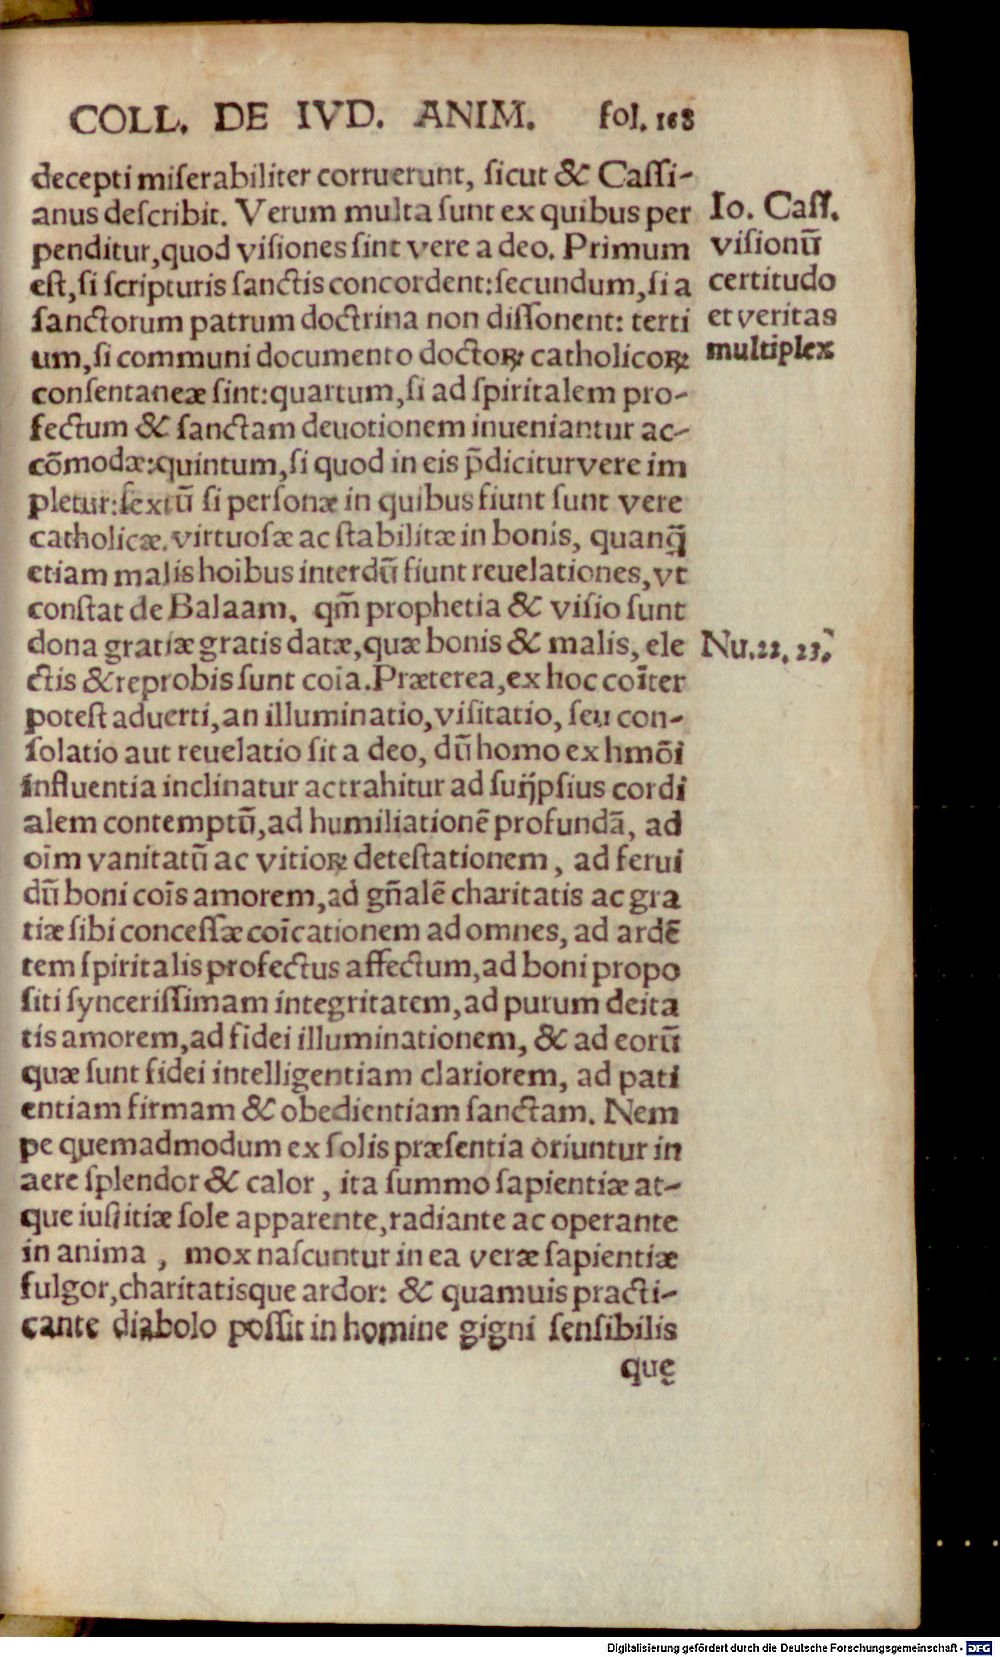 COLL. DE IVD. ANIM. fol. 168
decepti miſerabiliter corruerunt, ſicut & Caſſi-
anus deſcribit. Verum multa ſunt ex quibus per
penditur, quod viſiones ſint vere a deo. Primum
eſt, ſi ſcripturis ſanctis concordent: ſecundum, ſi a
ſanctorum patrum doctrina non diſſonent: terti
um, ſi communi documento doctoꝝ catholicoꝝ
conſentaneæ ſint: quartum, ſi ad ſpiritalem pro-
fectum & ſanctam deuotionem inueniantur ac-
cõmodæ: quintum, ſi quod in eis p̃dicitur vere im
pletur: ſextũ ſi perſonæ in quibus fiunt ſunt vere
catholicæ, virtuoſæ ac ſtabilitæ in bonis, quanq̃
etiam malis hoĩbus interdũ fiunt reuelationes, vt
conſtat de Balaam, qm̃ prophetia & viſio ſunt
dona gratiæ gratis datæ, quæ bonis & malis, ele
ctis & reprobis ſunt coĩa. Præterea, ex hoc coĩter
poteſt aduerti, an illuminatio, viſitatio, ſeu con-
ſolatio aut reuelatio ſit a deo, dũ homo ex hmõi
influentia inclinatur ac trahitur ad ſuijpſius cordi
alem contemptũ, ad humiliationẽ profundã, ad
oĩm vanitatũ ac vitioꝝ deteſtationem, ad ferui
dũ boni coĩs amorem, ad gñalẽ charitatis ac gra
tiæ ſibi conceſſæ coĩcationem ad omnes, ad ardẽ
tem ſpiritalis profectus affectum, ad boni propo
ſiti ſynceriſſimam integritatem, ad purum deita
tis amorem, ad fidei illuminationem, & ad eorũ
quæ ſunt fidei intelligentiam clariorem, ad pati
entiam firmam & obedientiam ſanctam. Nem
pe quemadmodum ex ſolis præſentia oriuntur in
aere ſplendor & calor, ita ſummo ſapientiæ at-
que iuſtitiæ ſole apparente, radiante ac operante
in anima, mox naſcuntur in ea veræ ſapientiæ
fulgor, charitatisque ardor: & quamuis practi-
cante diabolo poſſit in homine gigni ſenſibilis
quę
Io. Caſſ.
viſionũ
certitudo
et veritas
multiplex
Nu. 22. 23.
Digitalisierung gefördert durch die Deutsche Forschungsgemeinschaft - DFG